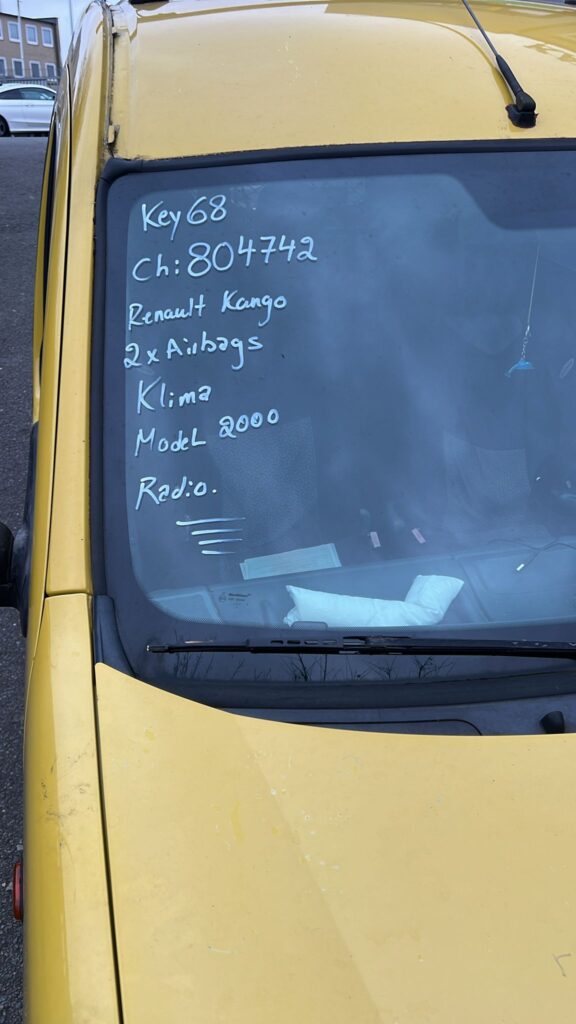 Key 68
Ch: 804742
Renault Kango
2 x Airbags
Klima
Model 2000
Radio.